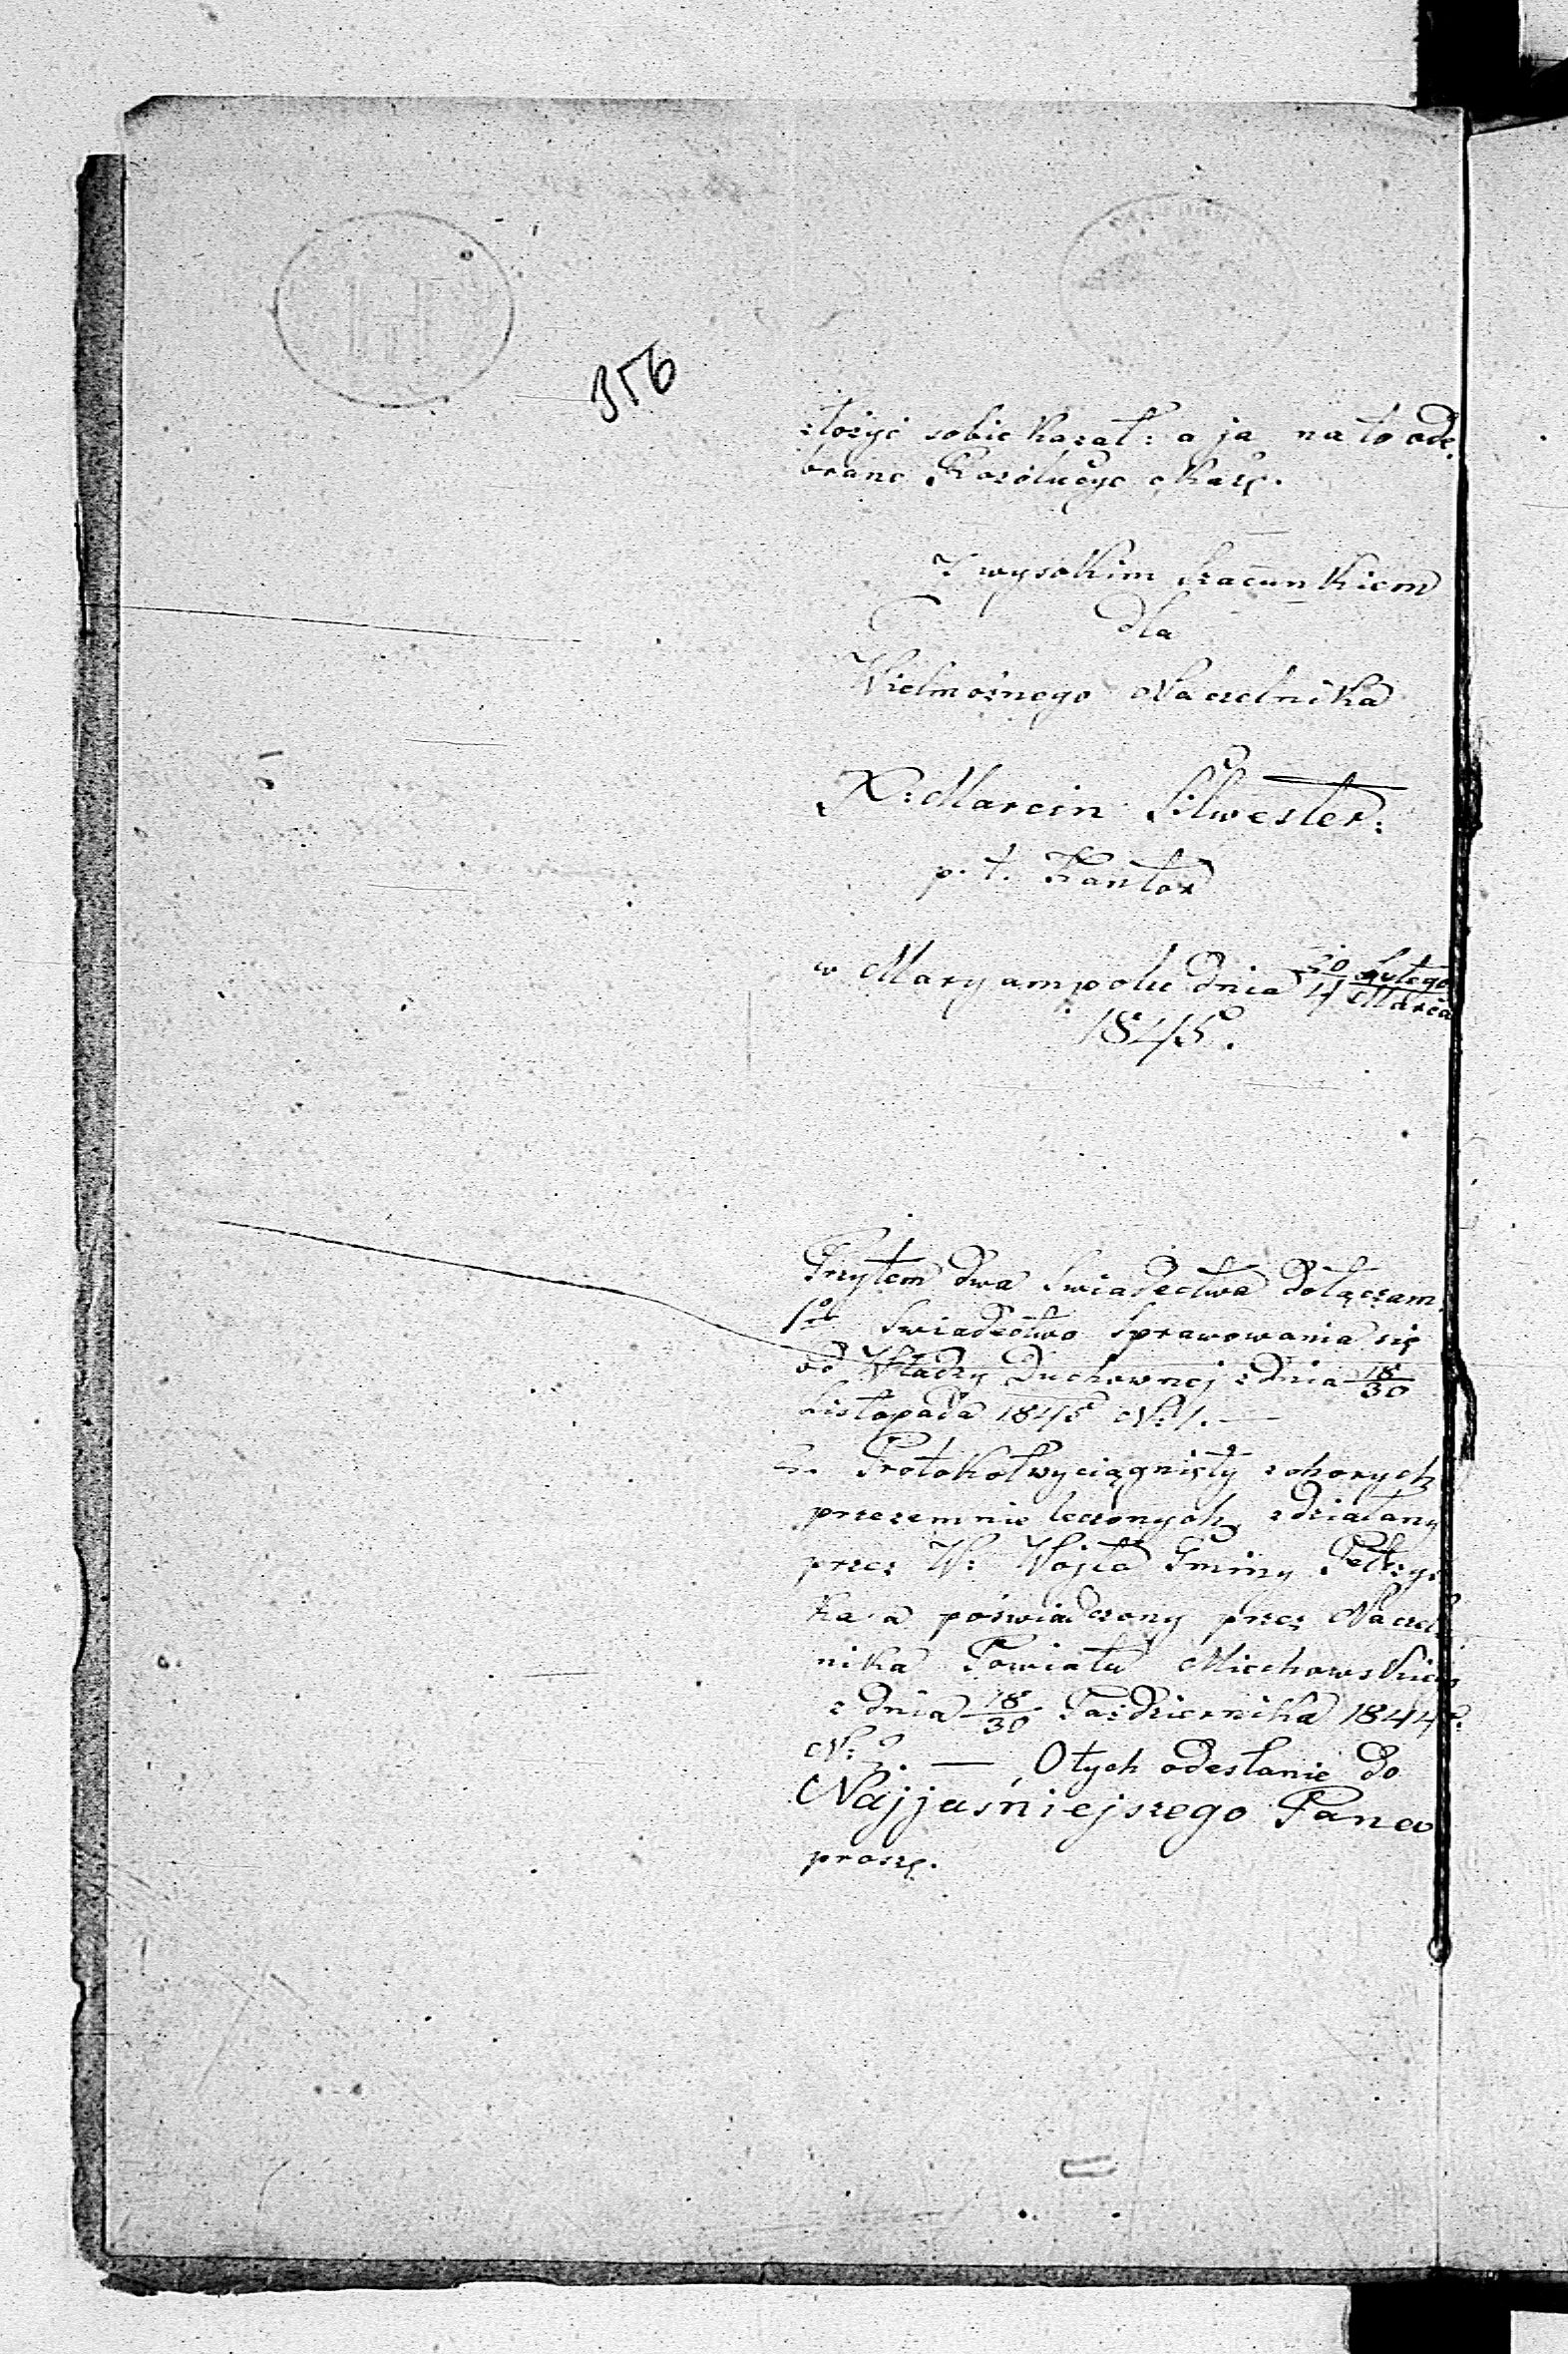 356
złożyć sobie kazał: a ja na to ode
brane Rozolucye okażę.
Z wysokim Szacunkiem
dla
Wielmożnego Naczelnika
X: Marcin Silwester:
p. t. Kantor
w Maryampolu dnia 20 Lutego / 4 Marca
1845.
Przytem dwa Swiadectwa dołączam.
1o Swiadectwo Sprawowania się
od Władzy Duchownej z dnia 18/30
Listopada 1845 N: 1. —
2. Protokoł wyciągnięty z chorych
przezemnie leczonych, zdziałany
przez W: Wojta Gminy
ka a poświadczony przez Naczel
nika Powiatu Miechowskiego
z dnia 18/30 Października 1844 r.
N: 2. — O tych odesłanie do
Najjaśniejszego Pana
proszę.